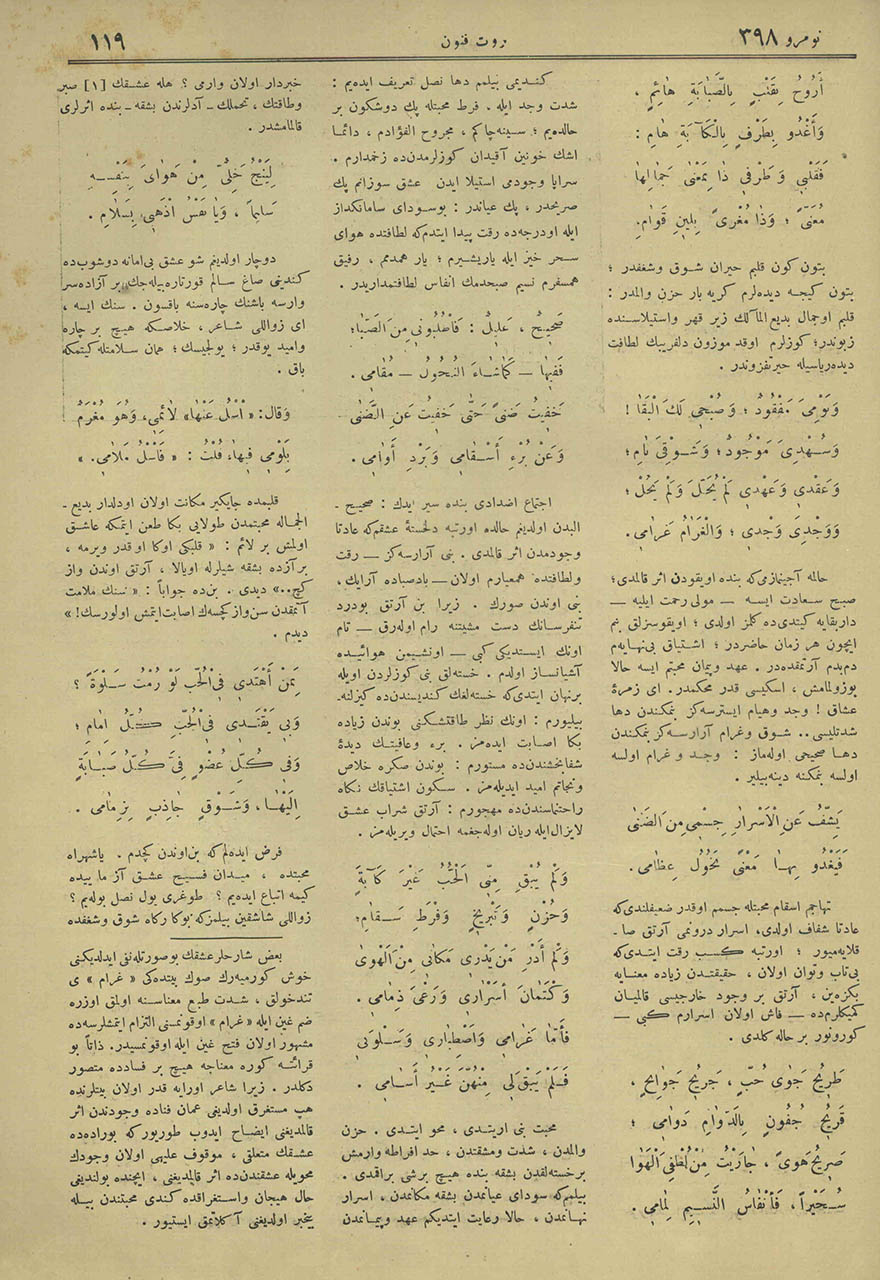 نومرو ٣٩٨
ثروت فنون
١١٩
أَرُوحُ بِقَلْبٍ بِالصَّبَابَةِ هَائِمٍ ،
وَأَغْدُو بِطَرْفٍ بِالْكَآبَةِ هَامِ :
فَقَلْبِي وَطَرْفِي ذَا بِمَعْنَى جَمَالِهَا
مُعَنًّى ؛ وَذَا مُغْرًى بِلِينِ قَوَامِ.
بتون كون قلبم حيران شوق وشغفدر ؛
بتون كيجه ديده‌لرم كريه بار حزن والمدر :
قلبم اوجمال بديع المآلك زير قهر واستيلاسنده
زبوندر؛ كوزلرم اوقد موزون دلفريبك لطافت
ديده‌رباسيله حيرتفزوندر .
وَنَوْمِيَ مَفْقُودٌ ؛ وَصُبْحِي لَكَ الْبَقَا !
وَسُهْدِيَ مَوْجُودٌ ؛ وَشَوْقِيَ نَامٍ ؛
وَعَقْدِي وَعَهْدِي لَمْ يُحَلَّ وَلَمْ يَحُلْ ؛
وَوَجْدِيَ وَجْدِي ؛ وَالْغَرَامُ غَرَامِي.
حالمه آجينمازمی‌كه بنده اويقودن اثر قالمدی؛
صبح سعادت ايسه — مولی رحمت ايليه —
داربقايه كيتدی‌ده كلمز اولدی ؛ اويقوسزلق بنم
ايچون هر زمان حاضردر ؛ اشتياق بی‌نهايه‌م
دم‌بدم آرتمقده‌در . عهد وپيمان محبتم ايسه حالا
بوزولمامش ، اسكيسی قدر محكمدر. ای زمرهٔ
عشاق ! وجد وهيام ايسترسه‌كز بنمكندن دها
شدتليسی.. شوق وغرام آرارسه‌كز بنمكندن
دها صحيحی اوله‌ماز : وجد و غرام اولسه
اولسه بنمكنه دينه‌بيلير .
يَشِفُّ عَنِ الْأَسْرَارِ جِسْمِي مِنَ الضَّنَى
فَيَغْدُو بِهَا مَعْنًى نُحُولُ عِظَامِي.
تهاجم اسقام محبتله جسمم اوقدر ضعيفلندی‌كه
عادتا شفاف اولدی، اسرار درونمی آرتق صا‌ـ
قلايه‌ميور ؛ اورتبه كسب رقت ايتدی‌كه
بی‌تاب وتوان اولان ، حقيقتدن زياده معنايه
بكزه‌ين ، آرتق بر وجود خارجيسی قالميان
كميكلرم‌ده — فاش اولان اسرارم كبی —
كورونور بر حاله كلدی .
طَرِيحُ جَوَى حُبٍّ ، جَرِيحُ جَوَانِحٍ ،
قَرِيحُ جُفُونٍ بِالدَّوَامِ دَوَامِي ؛
صَرِيحُ هَوًى ، جَارَيْتُ مِنْ لُطْفِي الْهَوَا
سُحَيْراً ، فَأَنْفَاسُ النَّسِيمِ لِمَامِي .
كنديمی بيلمم دها نصل تعريف ايده‌يم :
شدت وجد ايله . فرط محبتله پك دوشكون بر
حالده‌يم ؛ سينه‌چاكم ، مجروح الفؤادم ، دائما
اشك خونين آقيدان كوزلرمدن‌ده زخمدارم .
سراپا وجودمی استيلا ايدن عشق سوزانم پك
صريحدر ، پك عياندر : بوسودای سامانكداز
ايله اودرجه‌ده رقت پيدا ايتدم‌كه لطافتده هوای
سحر خيز ايله ياريشيرم ؛ يار همدمم ، رفيق
همسفرم نسيم صبحدمك انفاس لطافتمداريدر .
صَحِيحٌ ، عَلِيلٌ : فَاطْلُبُونِي مِنَ الصَّبَا؛
فَفِيهَا — كَمَا شَاءَ النُّحُولُ — مُقَامِي .
خَفِيتُ ضَنًى حَتَّى خَفِيتُ عَنِ الضَّنَى
وَعَنْ بُرْءِ أَسْقَامِي وَبَرْدِ أُوَامِي .
اجتماع اضدادی بنده سير ايدك : صحيح‌ـ
البدن اولديغم حالده اورتبه دلخستهٔ عشقم‌كه عادتا
وجودمدن اثر قالمدی . بنی آرارسه‌كز — رقت
ولطافتده همعيارم اولان — بادصباده آرايك ،
بنی اوندن صورك . زيرا بن آرتق بودرد
تنفرسانك دست مشيتنه رام اوله‌رق — تام
اونك ايستديكی كبی — اونشيمن هوائيده
آشيانساز اولدم . خسته‌لق بنی كوزلردن اويله
برنهان ايتدی‌كه خسته‌لغك كنديسندن‌ده كيزلنه‌ـ
بيليورم : اونك نظر طاقتشكنی بوندن زياده
بكا اصابت ايده‌مز . برء وعافيتك ديدهٔ
شفابخشندن‌ده مستورم : بوندن صكره خلاص
ونجاتم اميد ايديله‌مز . سكون اشتياقك نكاه
راحتماسندن‌ده مهجورم : آرتق شراب عشق
لايزال ايله ريان اوله‌جغمه احتمال ويريله‌مز .
وَلَمْ يُبْقِ مِنِّي الْحُبُّ غَيْرَ كَآبَةٍ
وَحُزْنٍ وَتَبْرِيحٍ وَفَرْطِ سَقَامٍ؛
وَلَمْ أَدْرِ مَنْ يَدْرِي مَكَانِي مِنَ الْهَوَى
وَكِتْمَانَ أَسْرَارِي وَرَعْيَ ذِمَامِي.
فَأَمَّا غَرَامِي وَاصْطِبَارِي وَسَلْوَتِي
فَلَمْ يَبْقَ لِي مِنْهُنَّ غَيْرُ أَسَامِي .
محبت بنی اريتدی ، محو ايتدی . حزن
والمدن ، شدت ومشقتدن ، حد افراطه وارمش
برخسته‌لقدن بشقه بنده هيچ برشی براقمدی .
بيلمم‌كه سودای عيانمدن بشقه مكانمدن ، اسرار
نهانمدن ، حالا رعايت ايتديكم عهد وپيمانمدن
خبردار اولان وارمی ؟ هله عشقك [١] صبر
وطاقتك ، تحملك ـ آدلرندن بشقه ـ بنده اثرلری
قالمامشدر .
لِيَنْجُ خَلِيٌّ مِنْ هَوَايَ بِنَفْسِهِ
سَالِماً ، وَيَا نَفْسُ اذْهَبِي بِسَلَامِ .
دوچار اولديغم شو عشق بی‌امانه دوشوب‌ده
كندينی صاغ سالم قورتاره‌بيله‌جك بر آزاده‌سر
وارسه باشنك چاره‌سنه باقسون . سنك ايسه ،
ای زواللی شاعر ، خلاصكه هيچ بر چاره
واميد يوقدر ؛ يولجيسك ؛ همان سلامتله كيتمكه
باق .
وَقَالَ: « اُسْلُ عَنْهَا » لَائِمِي، وَهُوَ مُغْرَمٌ
بِلَوْمِيَ فِيهَا، قُلْتُ : « فَاسْلُ مَلَامِي. »
قلبمده جايكير مكانت اولان اودلدار بديع‌ـ
الجماله محبتمدن طولايی بكا طعن ايتمكه عاشق
اولمش بر لائم : « قلبكی اوكا او قدر ويرمه ،
برآزده بشقه شيلرله اويالا ، آرتق اوندن واز
كچ..» ديدی . بن‌ده جواباً : « سنك ملامت
آتمقدن سن‌واز كچسه‌ك اصابت ايتمش اولورسك! »
ديدم .
بِمَنْ أَهْتَدِي فِي الْحُبِّ لَوْ رُمْتُ سَلْوَةً ؟
وَبِي يَقْتَدِي فِي الْحُبِّ كُلُّ إِمَامِ ؛
وَفِي كُلِّ عُضْوٍ فِيَّ كُلُّ صَبَابَةٍ
إِلَيْهَا ، وَشَوْقٍ جَاذِبٍ بِزِمَامِي .
فرض ايده‌لم‌كه بن‌اوندن كچدم . ياشهراه
محبتده ، ميدان فسيح عشق آز ما ييده
كيمه اتباع ايده‌يم ؟ طوغری يول نصل بوله‌يم ؟
زواللی شاشقين بيلمزكه بوكا ركاه شوق وشغفده
بعض شارحلر عشقك بوصورتله‌نفی ايدلديكنی
خوش كورميه‌رك صوك بيتده‌كی « غرام » ی
تندخولق ، شدت طبع معناسنه اولق اوزره
ضم غين ايله « غرام » اوقونمسنی التزام ايتمشلرسه‌ده
مشهور اولان فتح غين ايله اوقونمسيدر. ذاتاً بو
قرائته كوره معناجه هيچ بر فساده متصور
دكلدر . زيرا شاعر اورايه قدر اولان بيتلرنده
هپ مستغرق اولديغی عمان فناده وجودندن اثر
قالمديغنی ايضاح ايدوب طوريوركه بوراده‌ده
عشقك متعلقی ، موقوف عليهی اولان وجودك
محويله عشقندن‌ده اثر قالمديغنی ، ايچنده بولنديغی
حال هيجان واستغراقده كندی محبتندن بيله
بيخبر اولديغنی آكلاتمق ايستيور .